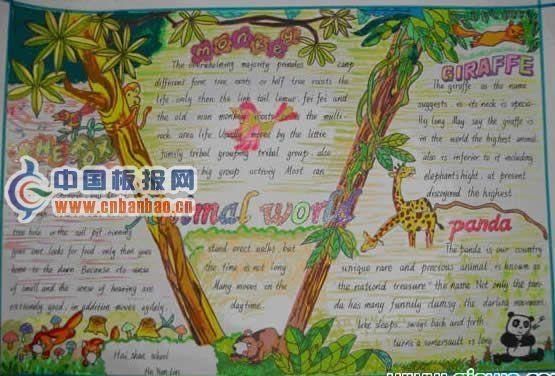 MONKEY
The overwhelming majority primates camp
different form tree roots or half tree roosts the
life only then the ling tail lemur, fei fei and
the old man monkey roosts the multi-
rock area life Usually move by the little
family tribal grouping tribal group, also
big group activety Most can
stand erect walks, but
the time is not long
Many moves in the
daytime.
animal world
中国板报网
www.cnbanbao.cn
tree hole or the soil pit evening
goes out looks for food only then goes
home to the dawn Because its sense
of smell and the sense of hearing are
extremely good, in addition moves agilely.
Hai shan school
GIRAFFE
The giraffe as the name
suggests is its neck is specia-
lly long May say the giraffe is
in the world the highest animal
also is inferior to it including
elephant's hight. at present
discovered the highest
panda
The panda is our country
unique rare and precious animal, is known as
the national treasure" the name Not only the pan-
da has many funnily clumsy, the darling movement
like sleeps, sways back and forth
turns a somersault is long